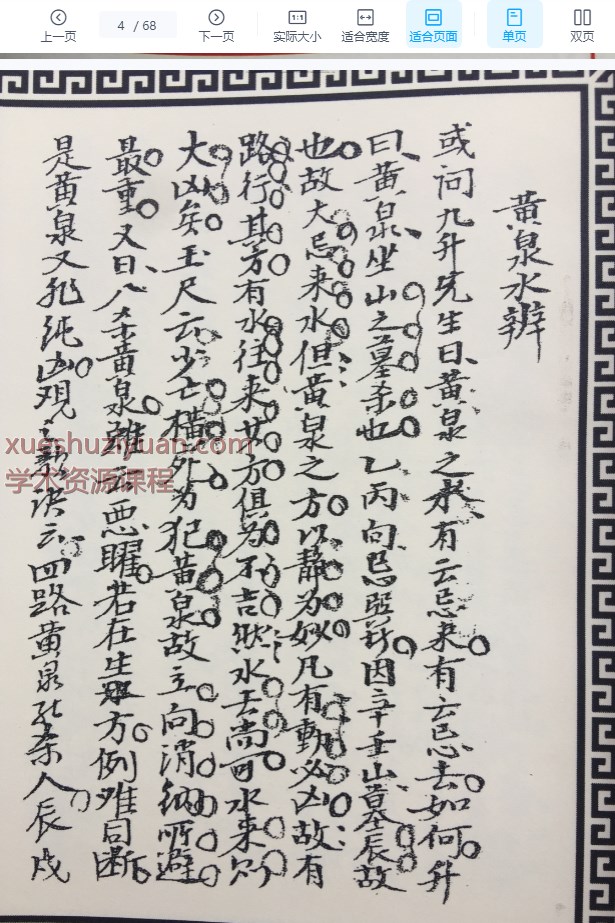 上一页
4 / 68
下一页
实际大小
适合宽度
适合页面
单页
双页
黄泉水辨
或问九升先生曰黄泉之水有云忌来有云忌去如何升
曰黄泉坐山之墓杀也乙丙向忌巽葬因辛壬山墓辰故
也故大忌来水但黄泉之方以静为妙凡有動必凶故有
路行其方有水往来其方俱为不吉然水去尚可水来则
大凶矣玉尺云少亡横死为犯黄泉故立向消纳所避
最重又曰八杀黄泉雖云恶曜若在生方例难同断
是黄泉又非纯凶观诀云四路黄泉能杀人辰戌
xueshuziyuan.com
学术资源课程